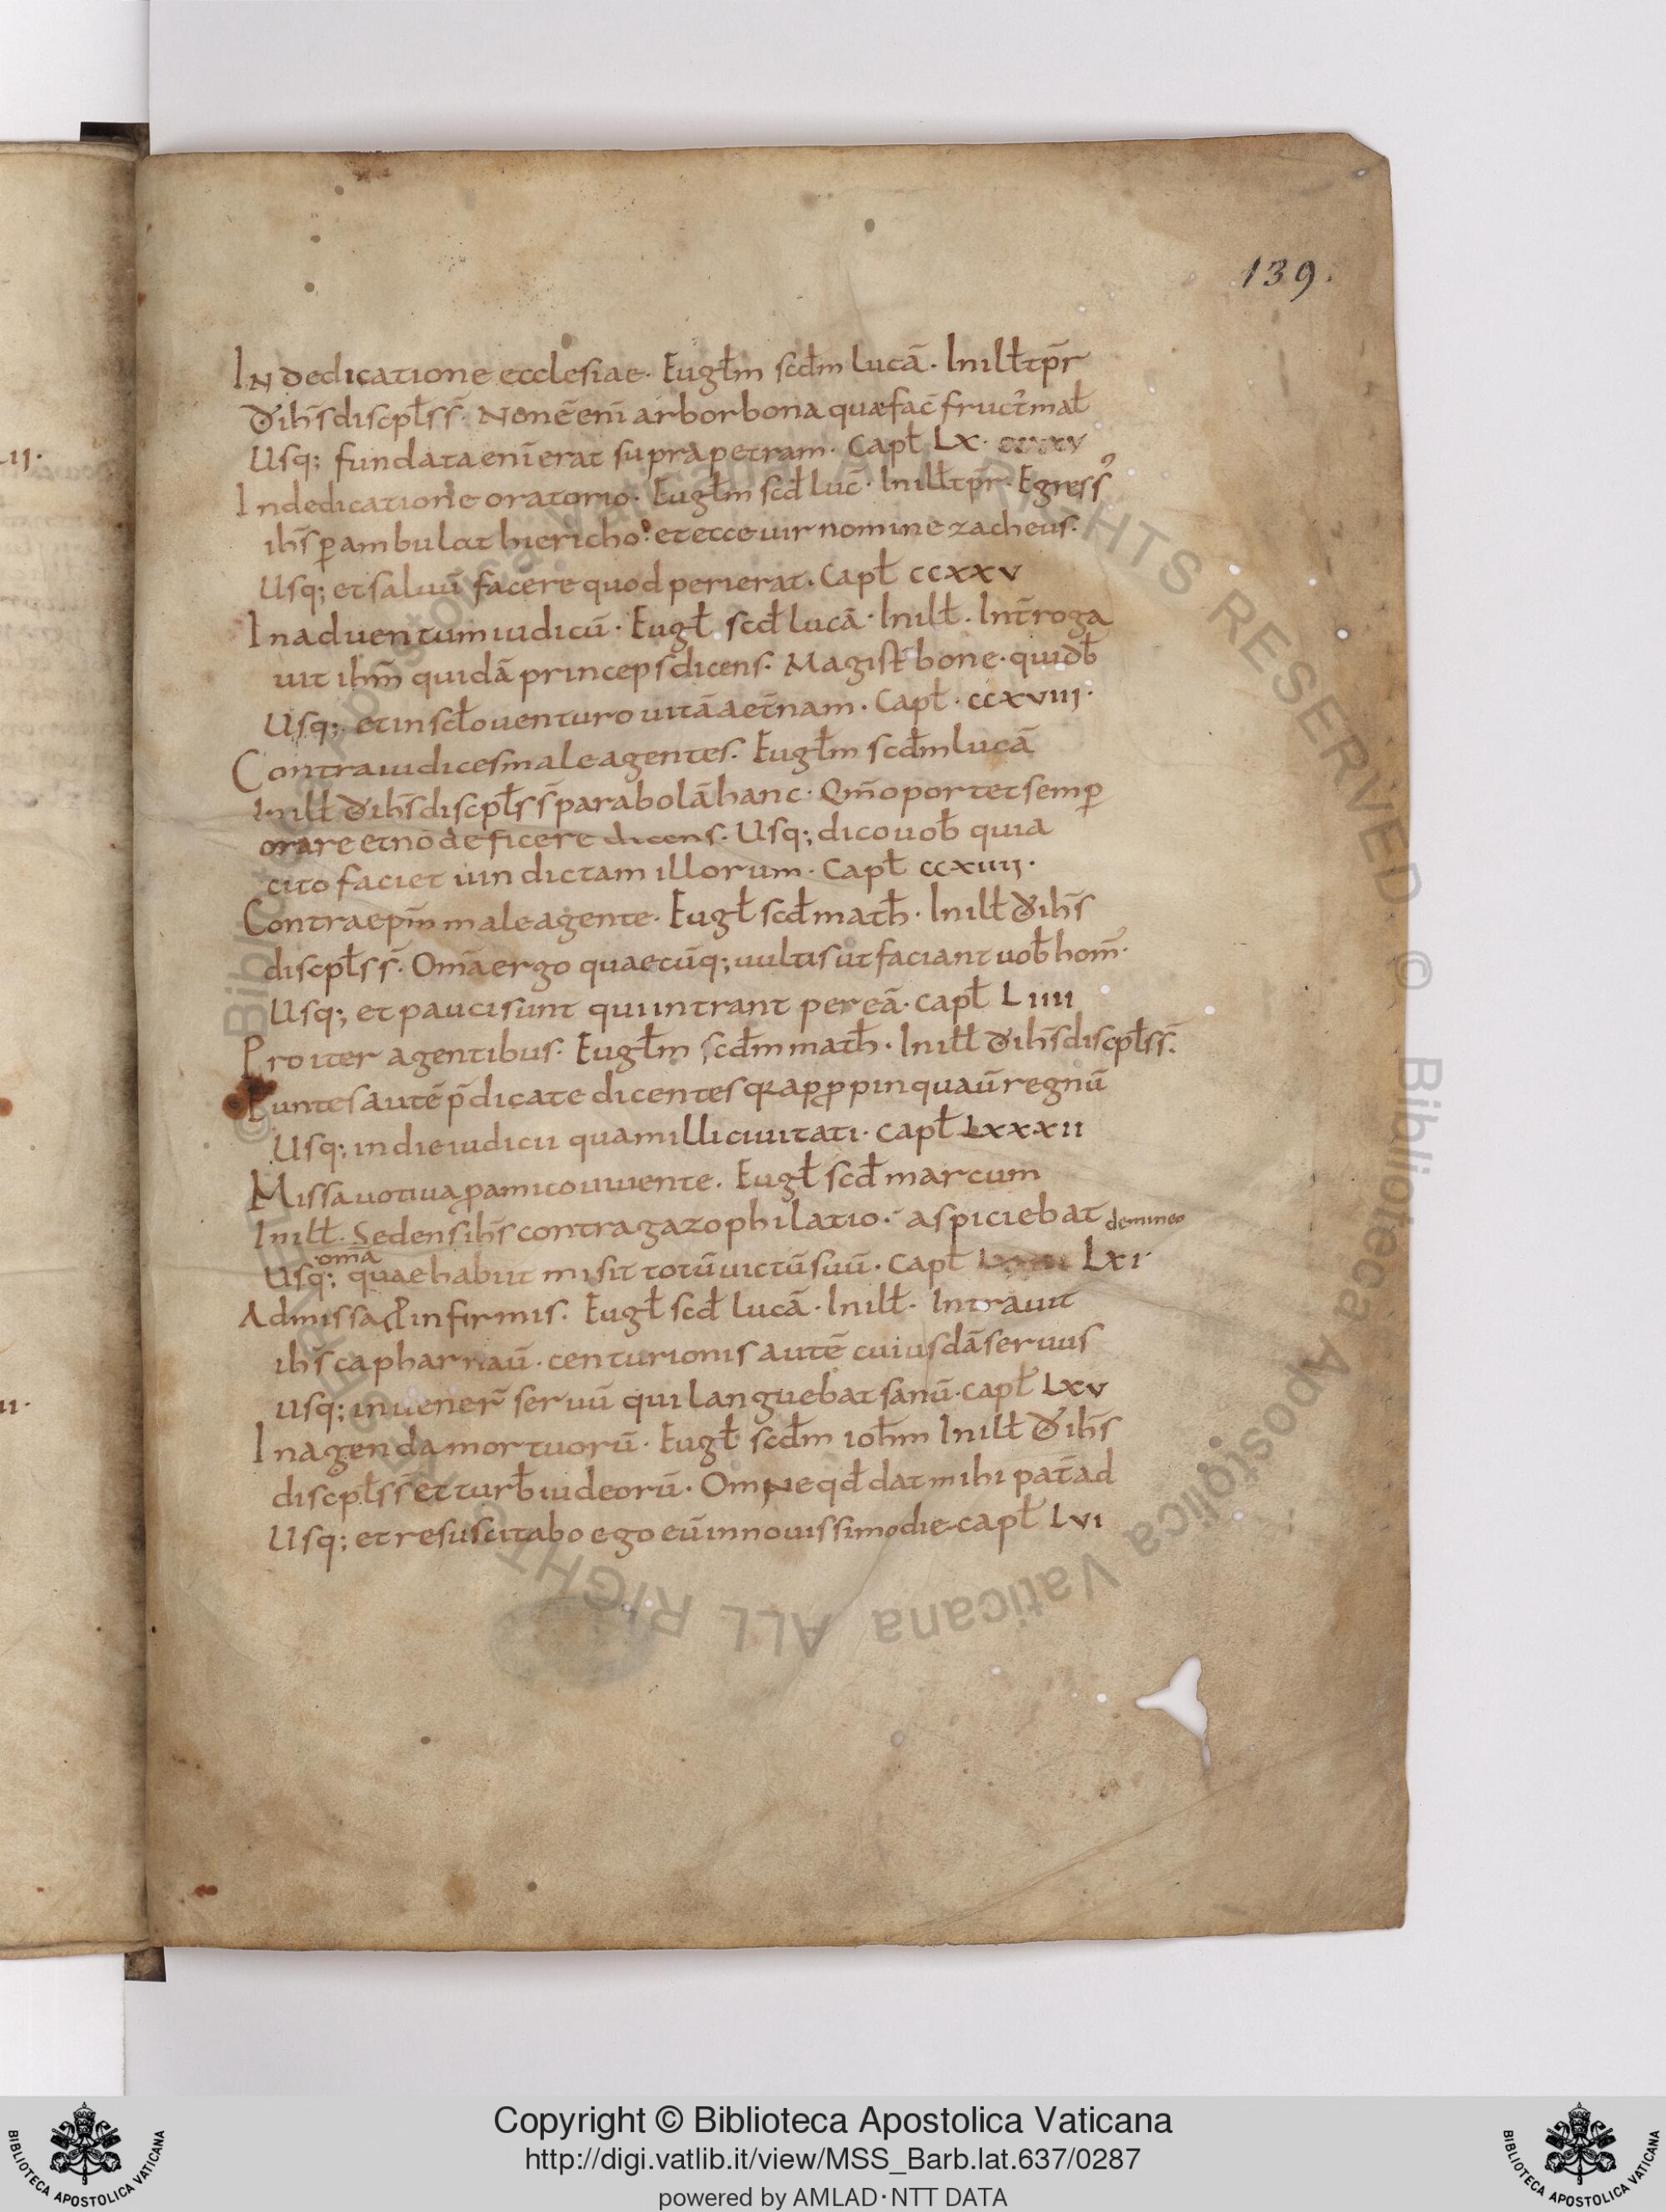 139.
In dedicatione ecclesiae. Eugł̄m scdm̄ lucā. Inill̄tp̄r
d̄ ihs̄ discpl̄s s̄. Nonē enī arbor bona quae fac̄ fruct̄ mal̄
Usq; fundata enī erat supra petram. Capł LX.
In dedicatione oratorio. Eugł̄m scd̄ luc̄. Inill̄tp̄r. Egress᾽
ihs̄ ꝑambulat hiericho. et ecce uir nomine zacheus.
Usq; et saluū facere quod perierat. Capł CCXXV
In aduentum iudicū. Eugł scd̄ lucā. Inill̄. Int̄roga
uit ihm̄ quidā princeps dicens. Magist̄ bone. quid b̄
Usq; et in scł̄o venturo vitā aet̄nam. Capł. CCXVIII.
Contra iudices male agentes. Eugł̄m scdm̄ lucā
Inill̄ d̄ ihs̄ discpl̄s s̄ parabolā hanc. Qm̄ oportet semꝑ
orare et nō deficere dicens. Usq; dico uob̄ quia
cito faciet uindictam illorum. Capł CCXIIII.
Contra ep̄m male agente. Eugł scd̄ math̄. Inill̄ d̄ ihs̄
discpl̄s s̄. Om̄a ergo quaecūq; uultis ut faciant uob̄ hom̄.
Usq; et pauci sunt qui intrant per eā. capł LIIII
Pro iter agentibus. Eugł̄m scdm̄ math̄. Inill̄ d̄ ihs̄ discpl̄s s̄.
Euntes autē p̄dicate dicentes q̄a apꝓpinquau̅ regnū
Usq; in die iudicii quam illi ciuitati. capł LXXXII
Missa uotiua ꝓ amico uiuente. Eugł scd̄ marcum
Inill̄. Sedens ihs̄ contra gazophilatio. aspiciebat
om̄a
Usq; quae habuit misit totū uictū suū. Capł LXI
Ad missa ꝓ infirmis. Eugł scd̄ lucā. Inill̄. Intrauit
ihs̄ capharnaū. centurionis autē cuiusdā seruus
Usq; inuener̄ seruū qui languebat sanū. capł LXV
In agenda mortuorū. Eugł scdm̄ ioh̄m Inill̄ d̄ ihs̄
discpl̄s s̄ et turb̄ iudeorū. Omne qd̄ dat mihi pat̄ ad
Usq; et resuscitabo ego eū in nouissimo die. capł LVI
© Biblioteca Apostolica Vaticana ALL RIGHTS RESERVED © Biblioteca Apostolica Vaticana ALL RIGHTS RESERVED
BIBLIOTECA APOSTOLICA VATICANA
Copyright © Biblioteca Apostolica Vaticana
http://digi.vatlib.it/view/MSS_Barb.lat.637/0287
powered by AMLAD·NTT DATA
BIBLIOTECA APOSTOLICA VATICANA